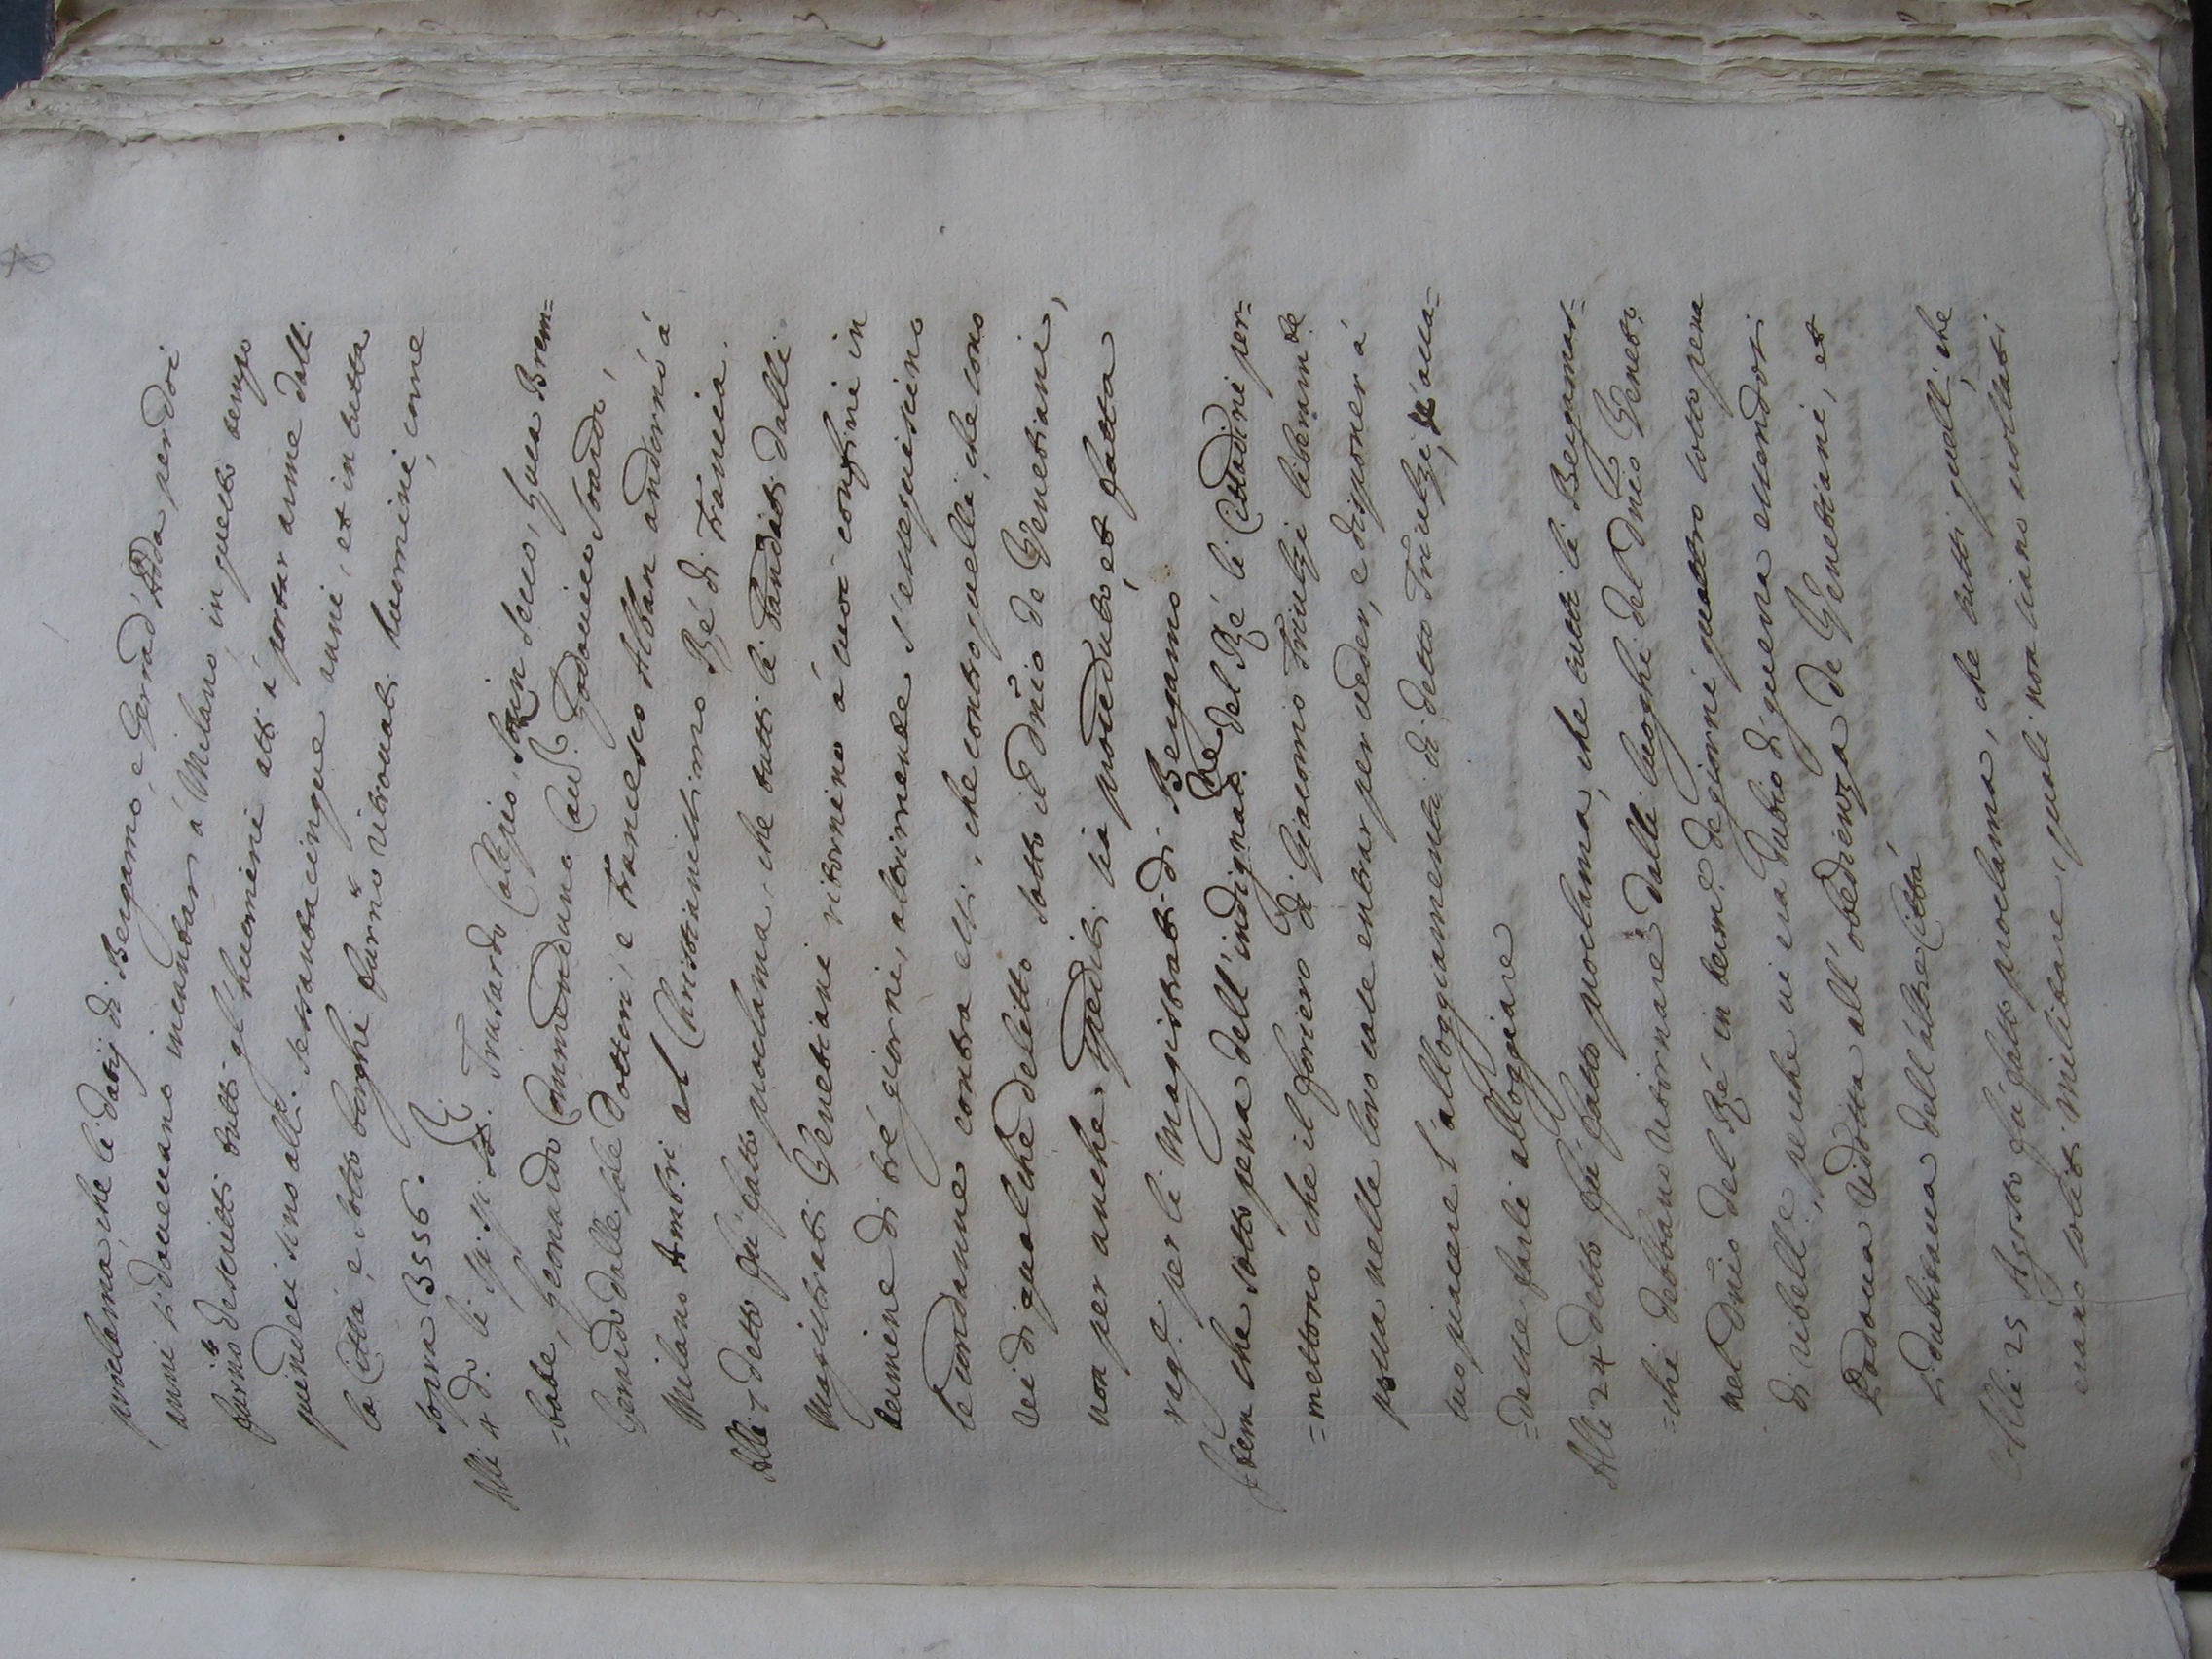 proclama, che li datij di Bergamo, e Gerrad'Adda per doi
anni si doueuano incantar à Milano, in questo tempo
furno descritti tutti gl'huomini atti à portar arme dalli
quindeci sino alli sessantacinque anni, et in tutta
la Città, e sotto borghi furno ritrouati huomini, come
sopra 3556.
Alli 4 d.º li Trusardo Calepio, Socin Secco, Luca Brem=
=bate, Leonardo Commenduno Cau.ri Lodouico Soardo,
Gerardo dalle Sale Dottori, e Francesco Alban andorno à
Milano Ambri al Christianissimo Rè di Francia.
Alli 7 detto fù fatto proclama, che tutti li banditi dalli
Magistrati Venetiani ritornino à suoi confini in
termine di trè giorni, altrimente s'essequiscino
le condanne contra essi, che contro quelli, che sono
rei di qualche delitto sotto il dnio de Venetiani,
non per anche spediti sia proceduto, et fatta
rag.e per li Magistrati di Bergamo
Item che sotto pena dell'indignat.ne del Rè li Cittadini per=
=mettono che il foriero di Giacomo Triulzi liberam.te
possa nelle loro case entrar per ueder, e disponer à
suo piacere l'alloggiamenti di detto Triulzi,
=deue farli alloggiare
Alli 24 detto fù fatto proclama, che tutti li Bergamas=
=chi debbano ritornare dalli luoghi del dnio Veneto
nel dnio del Rè in term.e de giorni quattro sotto pena
di ribelle, perche ui era dubio di guerra essendosi
Padoua ridotta all'obedienza de Venetiani, et
si dubitaua dell'altre Città
Alli 25 Agosto fù fatto proclama, che tutti quelli, che
erano soliti militare, quali non siano uoltati